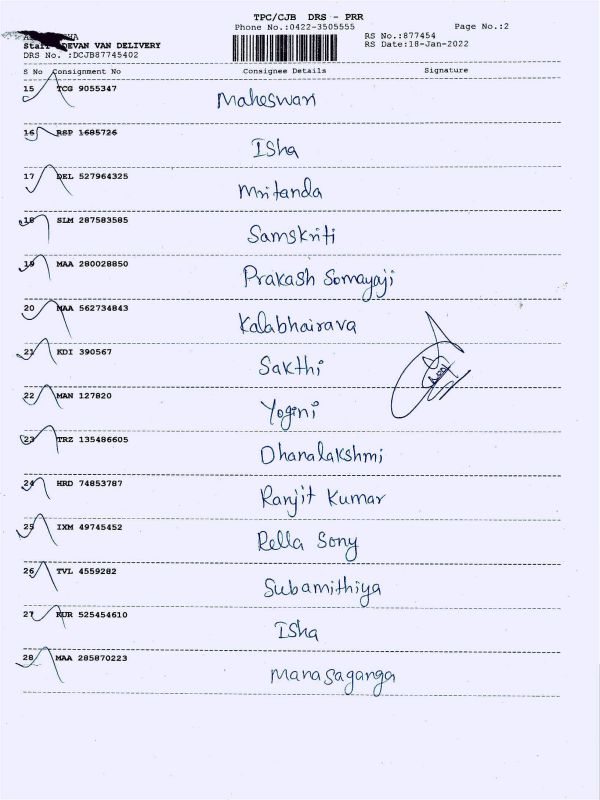 TPC/CJB DRS - PRR
Phone No.:0422-3505555 Page No.:2
RS No.:877454
DEVAN VAN DELIVERY RS Date:18-Jan-2022
DRS No. :DCJB87745402
S No Consignment No Consignee Details Signature
15 TCG 9055347 Maheswari
16 RSP 1685726 Isha
17 DEL 527964325 Mritanda
18 SLM 287583585 Samskriti
19 MAA 280028850 Prakash Somayaji
20 MAA 562734843 Kalabhairava
21 KDI 390567 Sakthi
22 MAN 127820 Yogini
23 TRZ 135486605 Dhanalakshmi
24 HRD 74853787 Ranjit Kumar
25 IXM 49745452 Rella Sony
26 TVL 4559282 Subamithiya
27 KUR 525454610 Isha
28 MAA 285870223 Manasaganga